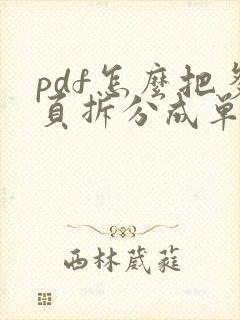 pdf怎麼把多
頁拆分成單
西林葳蕤